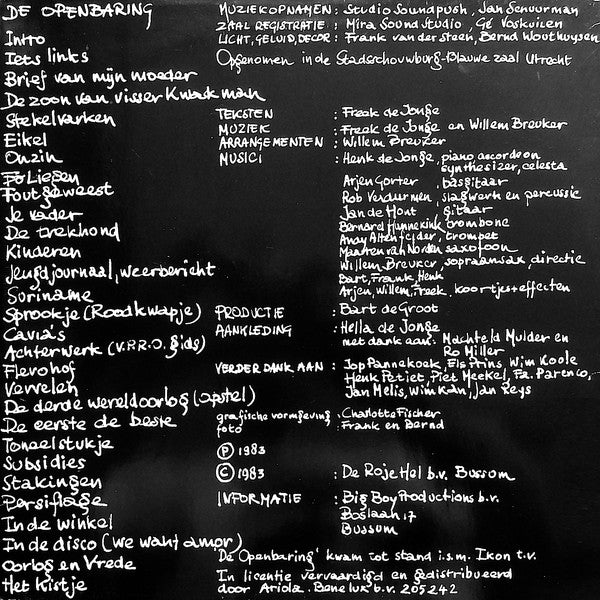 DE OPENBARING
Intro
Iets links
Brief van mijn moeder
De zoon van visser Kwakman
Stekelvarken
Eikel
Onzin
Fout geweest
Je vader
De trekhond
Kinderen
Jeugdjournaal, weerbericht
Suriname
Sprookje (Roodkwapje)
Cavia's
Achterwerk (V.P.R.O. gids)
Flevohof
Vervelen
De derde wereldoorlog (apstel)
De eerste de beste
Toneelstukje
Subsidies
Stakingen
Persiflage
In de winkel
In de disco (we want amor)
Oorlog en Vrede
Het kistje
MUZIEKOPNAMEN: Studio Soundpush, Jan Schuurman
ZAAL REGISTRATIE: Mira Sound Studio, Gé Voskuilen
LICHT, GELUID, DECOR: Frank van der Steen, Bernd Wouthuysen
Opgenomen in de Stadsschouwburg-Blauwe zaal Utrecht
TEKSTEN : Freek de Jonge
MUZIEK : Freek de Jonge en Willem Breuker
ARRANGEMENTEN : Willem Breuker
MUSICI : Henk de Jonge, piano, accordeon
synthesizer, celesta
Arjen Gorter, basgitaar
Rob Verdurmen, slagwerk en percussie
Jan de Hont, gitaar
Bernard Hunnekink, trombone
Andy Altenfelder, trompet
Maarten van Norden, saxofoon
Willem Breuker, sopraansax, directie
Bart, Frank, Henk
Arjen, Willem, Freek, koortjes + effecten
PRODUCTIE : Bart de Groot
AANKLEDING : Hella de Jonge
met dank aan: Machteld Mulder en
Ro Miller
VERDER DANK AAN : Jop Pannekoek, Els Prins, Wim Koole
Henk Petiet, Piet Meekel, Fa. Parenco,
Jan Melis, Wim Kan, Jan Reys
grafische vormgeving : Charlotte Fischer
foto : Frank en Bernd
Ⓟ 1983
© 1983 : De Roje Hel b.v. Bussum
INFORMATIE : Big Boy Productions b.v.
Boslaan 17
Bussum
'De Openbaring' kwam tot stand i.s.m. Ikon t.v.
In licentie vervaardigd en gedistribueerd
door Ariola Benelux b.v. 205242